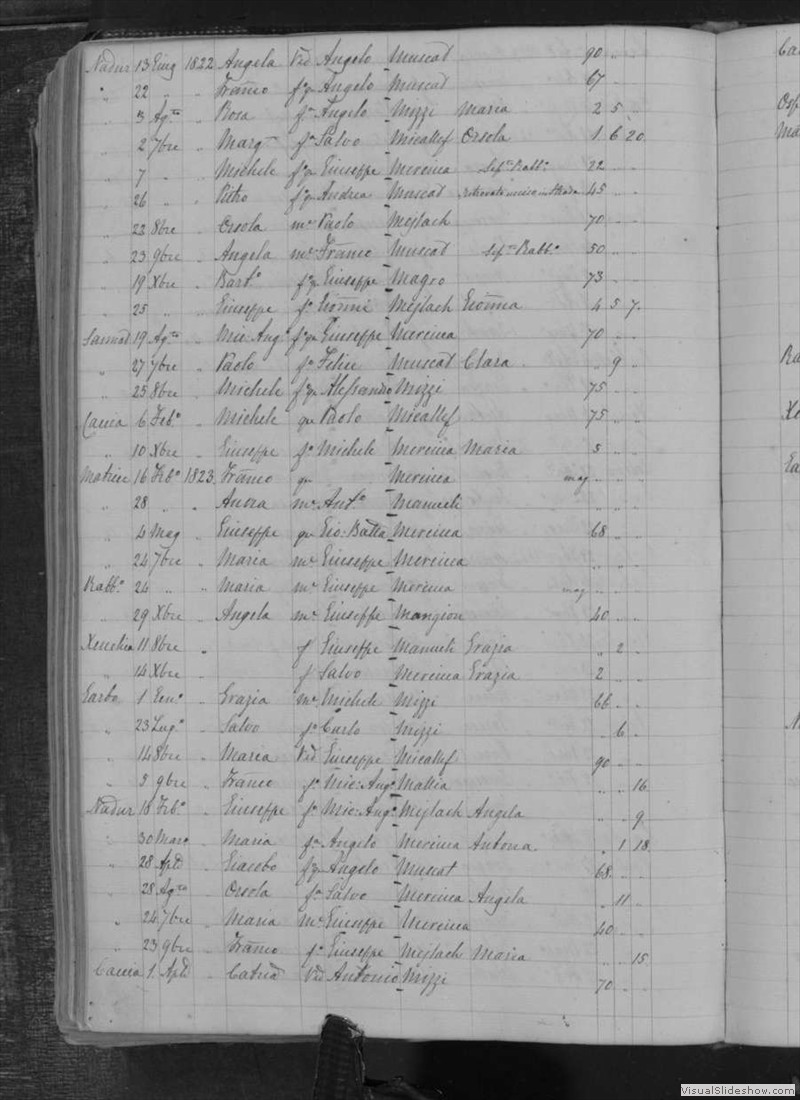 Nadur 13 Giug 1822 Angela Vid Angelo Muscat 90
" 22 " " Franco fqu Angelo Muscat 67
" 3 Agto " Rosa fa Angelo Mizzi Maria 2 5
" 2 7bre " Marga fa Salvo Micallef Orsola 1 6 20
" 7 " " Michele fqu Giuseppe Mercieca Septo Rabbo 22
" 26 " " Pietro fqu Andrea Muscat 45
" 22 8bre " Orsola me Paolo Mejlach 70
" 23 9bre " Angela me Franco Muscat Septa Rabbo 50
" 19 Xbre " Barto fqu Giuseppe Magro 73
" 25 " " Giuseppe fo Gionni Mejlach Gionna 4 5 7
Sannat 19 Agto " Mic: Ango fqu Giuseppe Mercieca 70
" 27 7bre " Paolo fo Felice Muscat Clara " 9
" 25 8bre " Michele fqu Alessandro Mizzi 75
Caccia 6 Febo " Michele qu Paolo Micallef 75
" 10 Xbre " Giuseppe fo Michele Mercieca Maria 5
Matrice 16 Febo 1823 Franco qu Mercieca mag
" 28 " " me Anto Manueli
" 4 Mag " Giuseppe qu Gio: Batta Mercieca 68
" 24 7bre " Maria me Giuseppe Mercieca
Rabbo 24 " " Maria me Giuseppe Mercieca mag
" 29 Xbre " Angela me Giuseppe Mangion 40
Xeuchia 11 8bre " f Giuseppe Manueli Grazia " 2
" 14 Xbre f Salvo Mercieca Grazia 2
Garbo 1 Geno " Grazia me Michele Mizzi 66
" 23 Lugo " Salvo fo Carlo Mizzi " 6
" 14 8bre " Maria Vid Giuseppe Micallef 90
" 5 9bre " Franco fo Mic: Ango Mallia " " 16
Nadur 18 Febo " Giuseppe fo Mic: Ango Mejlach Angela " " 9
" 30 Marzo " Maria fa Angelo Mercieca Antonia " 1 18
" 28 Aple " Giacobo fqu Angelo Muscat 68
" 28 Agto " Orsola fa Salvo Mercieca Angela " 11
" 24 7bre " Maria me Giuseppe Mercieca 40
" 23 9bre " Franco fo Giuseppe Mejlach Maria " " 15
Caccia 1 Aple " Catria Vid Antonio Mizzi 70
VisualSlideshow.com